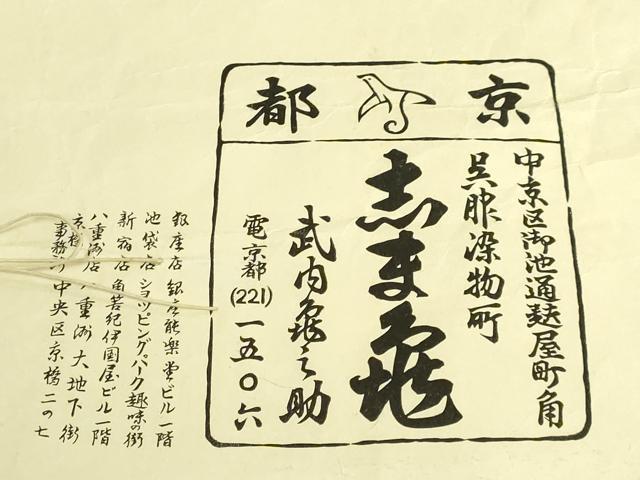 京都
中京区御池通麩屋町角
呉服染物所
志ま亀
武内亀之助
電京都(221)一五〇六
銀座店 銀座能楽堂ビル一階
池袋店 ショッピング。パーク趣味の街
新宿店 角筈紀伊国屋ビル一階
八重洲店 八重洲大地下街
中央区京橋二の七